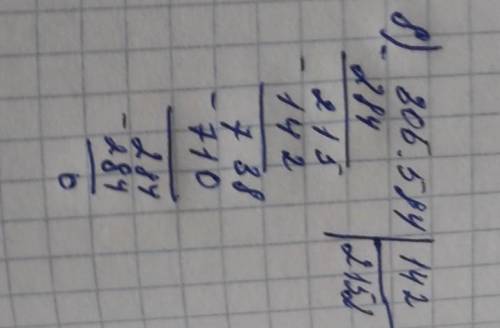 8) 306.584 | 142
- 284 | 2152
215
- 142
738
- 710
284
- 284
0